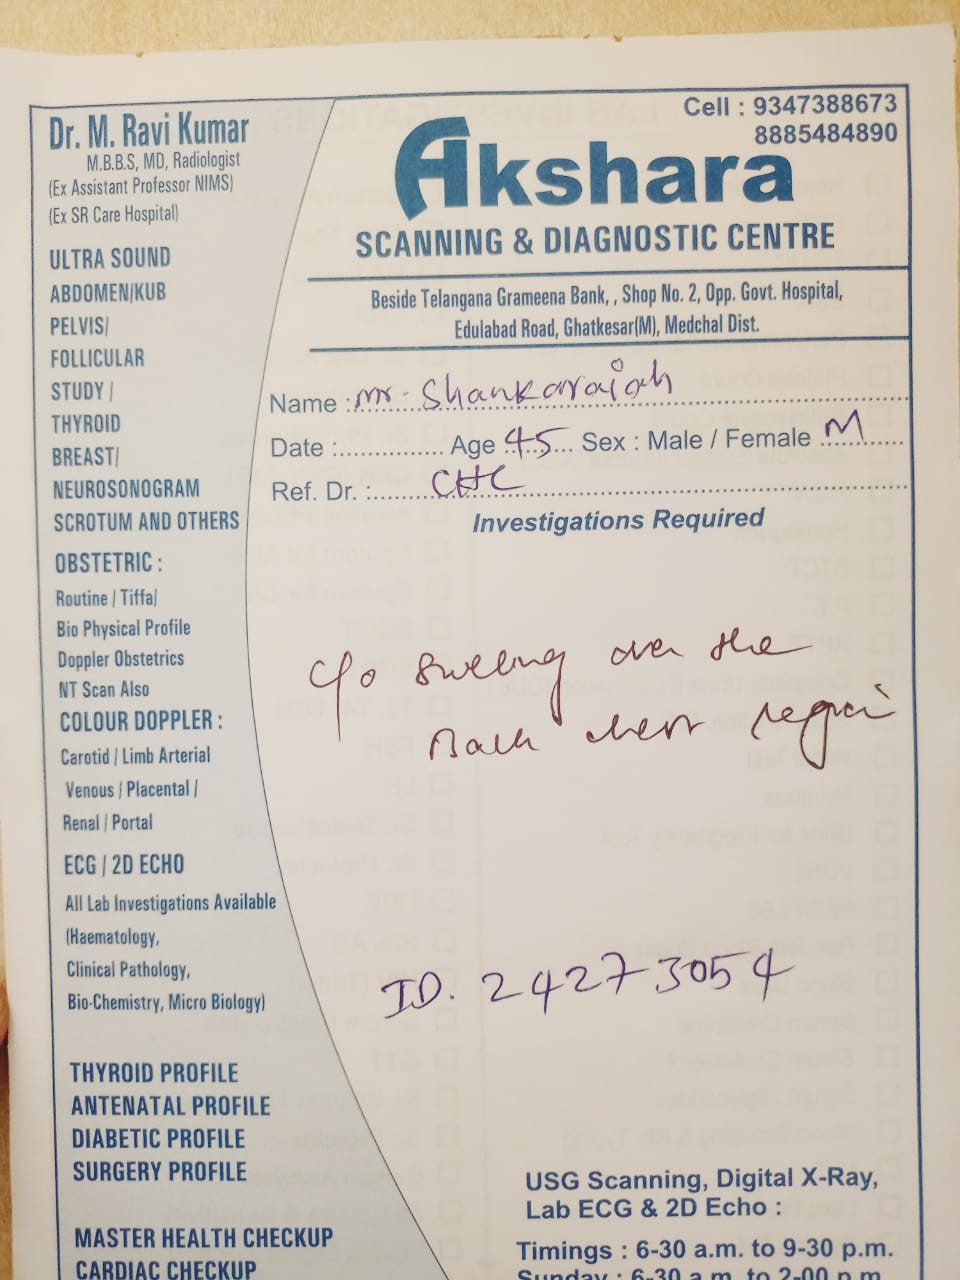 Cell : 9347388673
8885484890
Dr. M. Ravi Kumar
M.B.B.S, MD, Radiologist
(Ex Assistant Professor NIMS)
(Ex SR Care Hospital)
Akshara
SCANNING & DIAGNOSTIC CENTRE
Beside Telangana Grameena Bank, , Shop No. 2, Opp. Govt. Hospital,
Edulabad Road, Ghatkesar(M), Medchal Dist.
Name : Mr. Shankaraiah
Date : Age 45 Sex : Male / Female M
Ref. Dr. : CHC
Investigations Required
c/o swelling over the
Back chest region
ID. 24273054
ULTRA SOUND
ABDOMEN/KUB
PELVIS/
FOLLICULAR
STUDY /
THYROID
BREAST/
NEUROSONOGRAM
SCROTUM AND OTHERS
OBSTETRIC :
Routine / Tiffa/
Bio Physical Profile
Doppler Obstetrics
NT Scan Also
COLOUR DOPPLER :
Carotid / Limb Arterial
Venous / Placental /
Renal / Portal
ECG / 2D ECHO
All Lab Investigations Available
(Haematology,
Clinical Pathology,
Bio-Chemistry, Micro Biology)
THYROID PROFILE
ANTENATAL PROFILE
DIABETIC PROFILE
SURGERY PROFILE
MASTER HEALTH CHECKUP
CARDIAC CHECKUP
USG Scanning, Digital X-Ray,
Lab ECG & 2D Echo :
Timings : 6-30 a.m. to 9-30 p.m.
Sunday : 6-30 a.m. to 2-00 p.m.